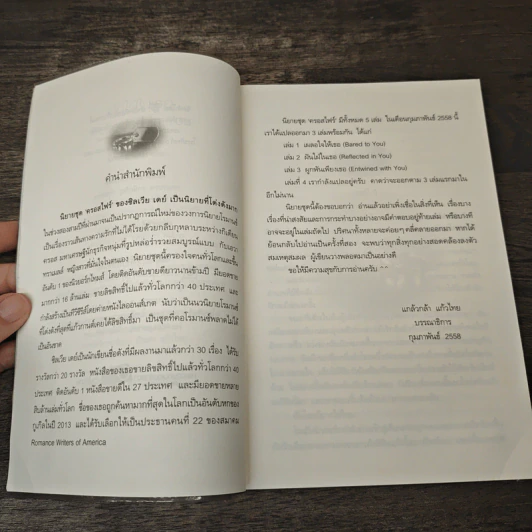 คำนำสำนักพิมพ์
นิยายชุด 'ครอสไฟร์' ของซิลเวีย เดย์ เป็นนิยายที่โด่งดังมาก
ในช่วงสองสามปีที่ผ่านมาจนเป็นปรากฏการณ์ใหม่ของวงการนิยายโรมานซ์
เป็นเรื่องราวเส้นทางความรักที่ไม่ได้โรยด้วยกลีบกุหลาบระหว่างกิเดียน
ครอส มหาเศรษฐีนักธุรกิจหนุ่มที่รูปหล่อร่ำรวยสมบูรณ์แบบ กับเอวา
ทรามเมลล์ หญิงสาวที่มั่นใจในตนเอง นิยายชุดนี้ครองใจคนทั่วโลกและขึ้น
อันดับ 1 ของนิวยอร์กไทมส์ โดยติดอันดับขายดียาวนานข้ามปี มียอดขาย
มากกว่า 16 ล้านเล่ม ขายลิขสิทธิ์ไปแล้วทั่วโลกกว่า 40 ประเทศ และ
กำลังสร้างเป็นทีวีซีรีส์โดยค่ายหนังไลออนส์เกต นับว่าเป็นนวนิยายโรมานซ์
ที่โด่งดังที่สุดที่แก้วกานต์เคยได้ลิขสิทธิ์มา เป็นชุดที่คอโรมานซ์พลาดไม่ได้
เป็นอันขาด
ซิลเวีย เดย์เป็นนักเขียนชื่อดังที่มีผลงานมาแล้วกว่า 30 เรื่อง ได้รับ
รางวัลกว่า 20 รางวัล หนังสือของเธอขายลิขสิทธิ์ไปแล้วทั่วโลกกว่า 40
ประเทศ ติดอันดับ 1 หนังสือขายดีใน 27 ประเทศ และมียอดขายหลาย
สิบล้านเล่มทั่วโลก ชื่อของเธอถูกค้นหามากที่สุดในโลกเป็นอันดับหกของ
กูเกิลในปี 2013 และได้รับเลือกให้เป็นประธานคนที่ 22 ของสมาคม
Romance Writers of America
นิยายชุด 'ครอสไฟร์' มีทั้งหมด 5 เล่ม ในเดือนกุมภาพันธ์ 2558 นี้
เราได้แปลออกมา 3 เล่มพร้อมกัน ได้แก่
เล่ม 1 เผลอใจให้เธอ (Bared to You)
เล่ม 2 ฝันใฝ่ในเธอ (Reflected in You)
เล่ม 3 ผูกพันเพียงเธอ (Entwined with You)
เล่มที่ 4 เรากำลังแปลอยู่ครับ คาดว่าจะออกตาม 3 เล่มแรกมาใน
อีกไม่นาน
นิยายชุดนี้ต้องขอบอกว่า อ่านแล้วอย่าเพิ่งเชื่อในสิ่งที่เห็น เรื่องบาง
เรื่องที่น่าสงสัยและการกระทำบางอย่างอาจมีคำตอบอยู่ท้ายเล่ม หรือบางที
อาจจะอยู่ในเล่มถัดไป ปริศนาทั้งหลายจะค่อยๆ คลี่คลายออกมา หากได้
ย้อนกลับไปอ่านเป็นครั้งที่สอง จะพบว่าทุกสิ่งทุกอย่างสอดคล้องลงตัว
สมเหตุสมผล ผู้เขียนวางพลอตมาเป็นอย่างดี
ขอให้มีความสุขกับการอ่านครับ ^^
แกล้วกล้า แก้วไทย
บรรณาธิการ
กุมภาพันธ์ 2558